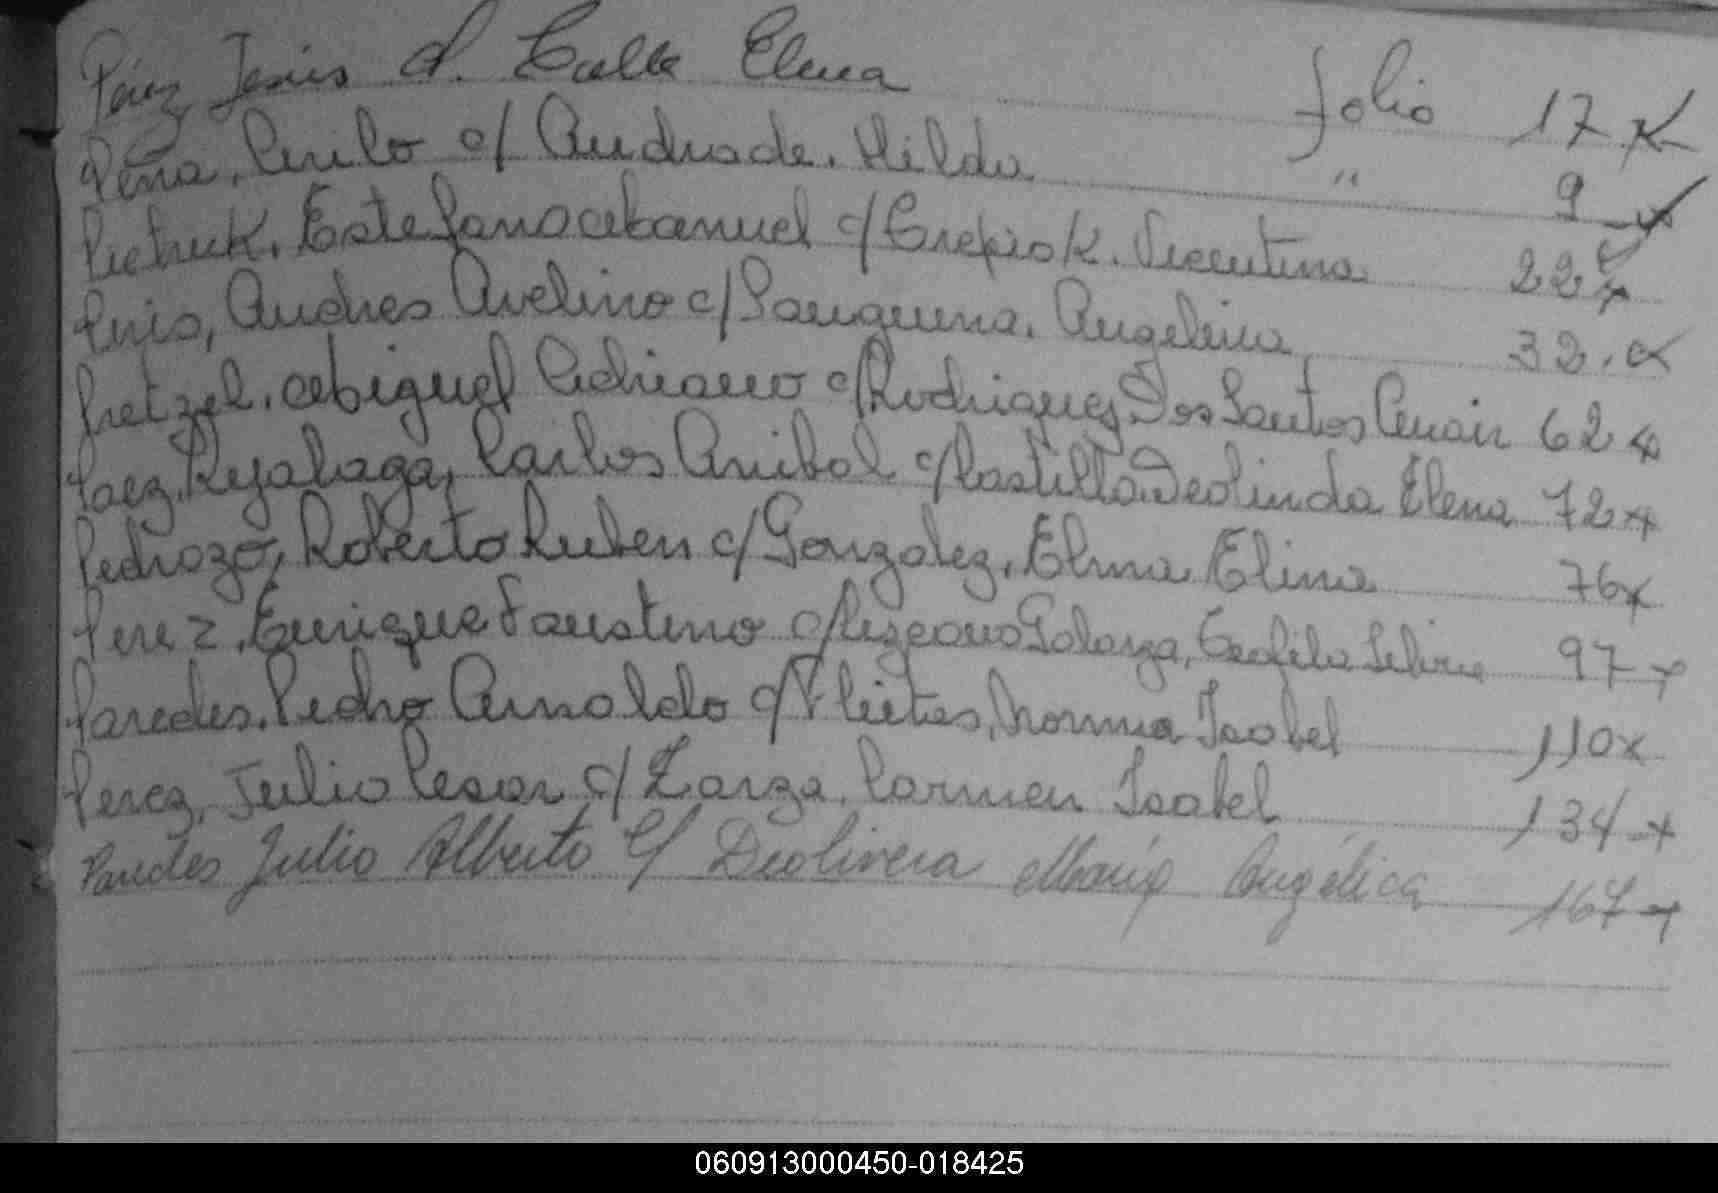 Pérez Jesús c/. Calle Elena folio 17 x
Peña, Cirilo c/ Andrade. Hilda " 9
Pietruk. Estefano Manuel c/ Vicentina 22 x
Andres Avelino c/ Sanguina. Angelina 32. x
Pretzel. Miguel Adriano c/ Rodriguez Dos Santos 62 x
Paez Carlos Anibal c/ Castillo Deolinda Elena 72 x
Pedrozo, Roberto Ruben c/ Gonzalez. Elma Elina 76 x
Perez. Enrique Faustino c/ Galarza, 97 x
Paredes. Pedro Arnaldo c/ Fleitas, Norma Isabel 110 x
Perez, Julio Cesar c/ Zarza, Carmen Isabel 134 x
Paredes Julio Alberto c/ Deolivera María Angélica 167 x
060913000450-018425